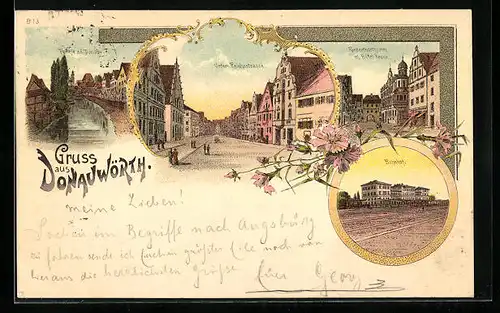 Untere Reichsstrasse
Bahnhof.
Gruss
aus
DONAUWÖRTH.
meine Lieben!
im Begriffe nach Augsburg
zu fahren sende ich in größter Eile noch von
hieraus die herzlichsten Grüße Euer Georg